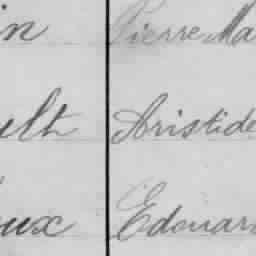 in Pierre Ma
ult Aristide
oux Edouar